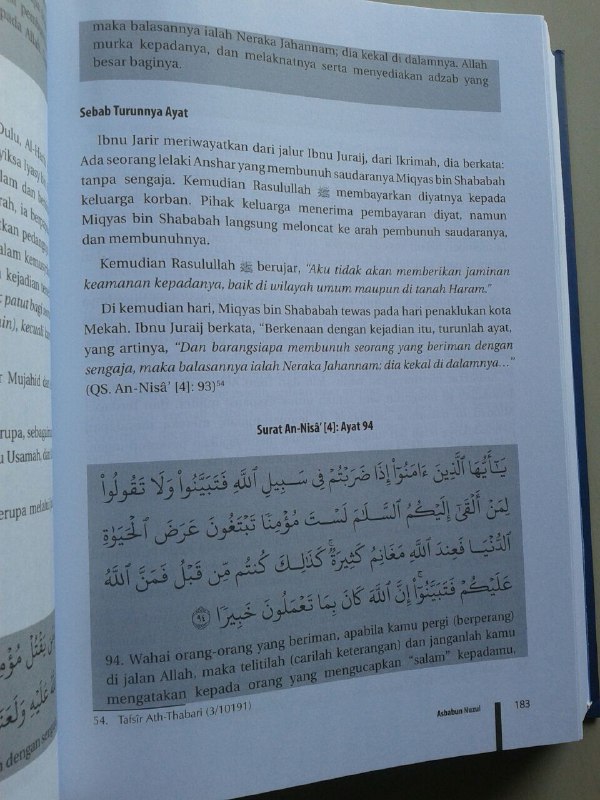 maka balasannya ialah Neraka Jahannam; dia kekal di dalamnya. Allah
murka kepadanya, dan melaknatnya serta menyediakan adzab yang
besar baginya.
Sebab Turunnya Ayat
Ibnu Jarir meriwayatkan dari jalur Ibnu Juraij, dari Ikrimah, dia berkata:
Ada seorang lelaki Anshar yang membunuh saudaranya Miqyas bin Shababah
tanpa sengaja. Kemudian Rasulullah ﷺ membayarkan diyatnya kepada
keluarga korban. Pihak keluarga menerima pembayaran diyat, namun
Miqyas bin Shababah langsung meloncat ke arah pembunuh saudaranya,
dan membunuhnya.
Kemudian Rasulullah ﷺ berujar, "Aku tidak akan memberikan jaminan
keamanan kepadanya, baik di wilayah umum maupun di tanah Haram."
Di kemudian hari, Miqyas bin Shababah tewas pada hari penaklukan kota
Mekah. Ibnu Juraij berkata, "Berkenaan dengan kejadian itu, turunlah ayat,
yang artinya, "Dan barangsiapa membunuh seorang yang beriman dengan
sengaja, maka balasannya ialah Neraka Jahannam; dia kekal di dalamnya..."
(QS. An-Nisâ' [4]: 93)⁵⁴
Surat An-Nisâ' [4]: Ayat 94
يَـٰٓأَيُّهَا ٱلَّذِينَ ءَامَنُوٓا۟ إِذَا ضَرَبْتُمْ فِى سَبِيلِ ٱللَّهِ فَتَبَيَّنُوا۟ وَلَا تَقُولُوا۟
لِمَنْ أَلْقَىٰٓ إِلَيْكُمُ ٱلسَّلَـٰمَ لَسْتَ مُؤْمِنًا تَبْتَغُونَ عَرَضَ ٱلْحَيَوٰةِ
ٱلدُّنْيَا فَعِندَ ٱللَّهِ مَغَانِمُ كَثِيرَةٌ ۚ كَذَٰلِكَ كُنتُم مِّن قَبْلُ فَمَنَّ ٱللَّهُ
عَلَيْكُمْ فَتَبَيَّنُوٓا۟ ۚ إِنَّ ٱللَّهَ كَانَ بِمَا تَعْمَلُونَ خَبِيرًا ٩٤
94. Wahai orang-orang yang beriman, apabila kamu pergi (berperang)
di jalan Allah, maka telitilah (carilah keterangan) dan janganlah kamu
mengatakan kepada orang yang mengucapkan "salam" kepadamu,
54. Tafsîr Ath-Thabari (3/10191)
Asbabun Nuzul
183